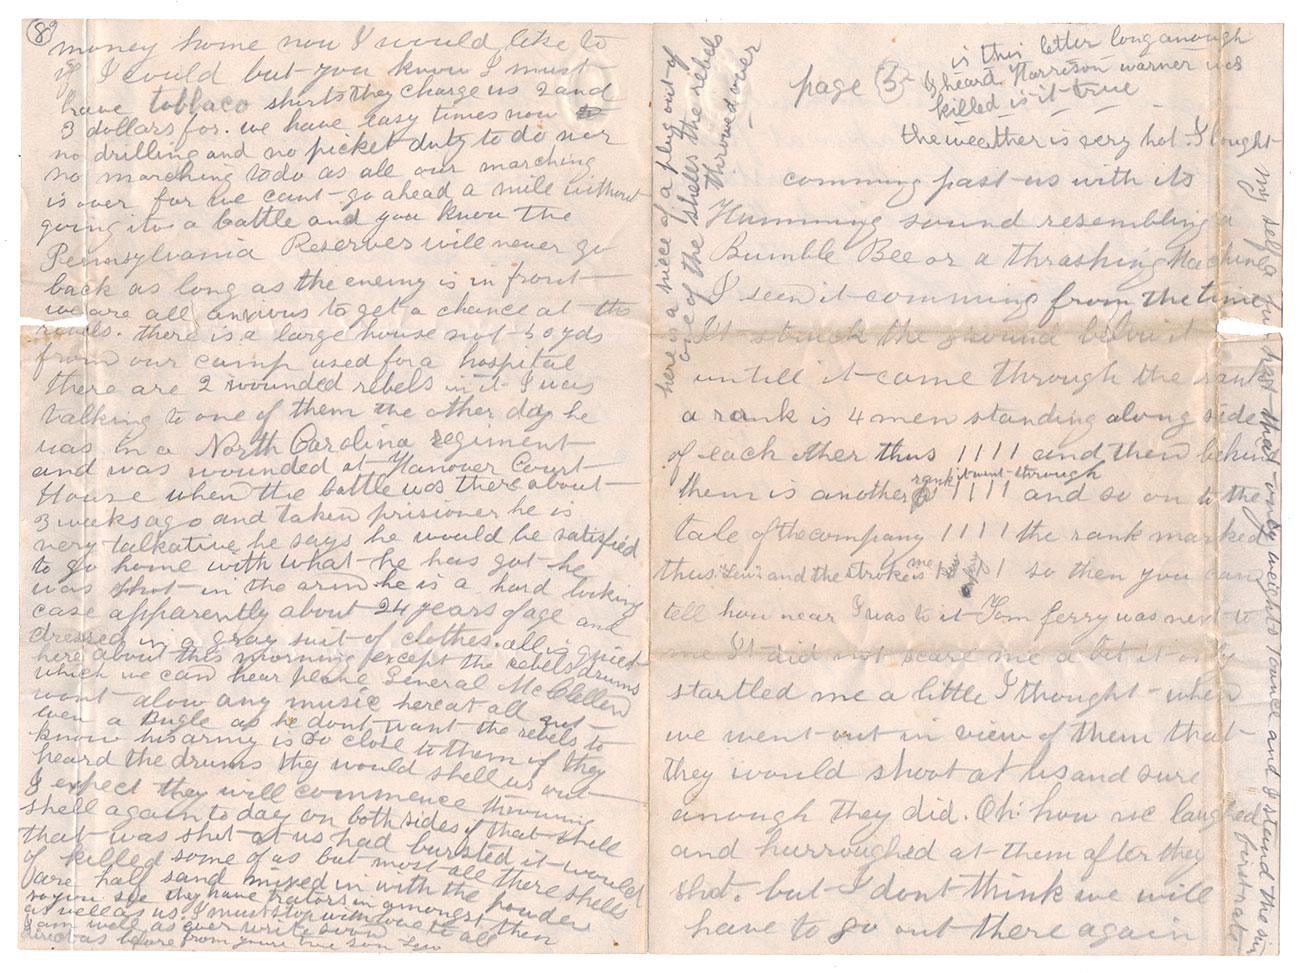 8
money home now I would like to
if I could but you know I must
have tobbaco shirts they charge us 2 and
3 dollars for. we have easy times now
no drilling and no picket duty to do nor
no marching to do as all our marching
is over for we cant go ahead a mile without
going into a battle and you know the
Pennsylvania Reserves will never go
back as long as the enemy is in front
we are all anxious to get a chance at the
rebels. there is a large house not 50 yds
from our camp used for a hospital
there are 2 wounded rebels in it I was
talking to one of them the other day he
was in a North Carolina regiment
and was wounded at Hanover Court
House when the battle was there about
3 weeks ago and taken prisioner he is
very talkative he says he would be satisfied
to go home with what he has got he
was shot in the arm he is a hard looking
case apparently about 24 years of age and
dressed in a gray suit of clothes. all is quiet
here about this morning except the rebels drums
which we can hear plane General McClellen
wont alow any music here at all not
even a Bugle as he dont want the rebels to
know his army is so close to them if they
heard the drums they would shell us out
I expect they will commence throwing
shell again to day on both sides if that shell
that was shot at us had bursted it would
of killed some of us but most all there shells
are half sand mixed in with the powder
so you see they have trators in amongst them
as well as us. I must stop with love to all
I am well as ever write soon
direct as before from youre true son Lew
page 5
is this letter long anough
I heard Harrison warner was
killed is it true
the weather is very hot. I bought
my self a fur hat that only weights 1 ounce and I stand the sun
first rate
here is a piece of a plug out of
one of the shells the rebels
throwed over
comming past us with its
Humming sound resembling a
Bumble Bee or a thrashing Machine
I seen it comming from the time
It struck the ground below it
untill it came through the rank
a rank is 4 men standing along side
of each other thus 1 1 1 1 and then behind
them is another 1 1 1 1 and so on to the
rank it went through
tale of the company 1 1 1 1 the rank marked
thus "Lew" and the stroke is me 1 1 so then you can
tell how near I was to it Tom ferry was next to
me It did not scare me a bit it only
startled me a little I thought when
we went out in view of them that
they would shoot at us and sure
anough they did. Oh! how we laughed
and hurroughed at them after they
shot. but I dont think we will
have to go out there again